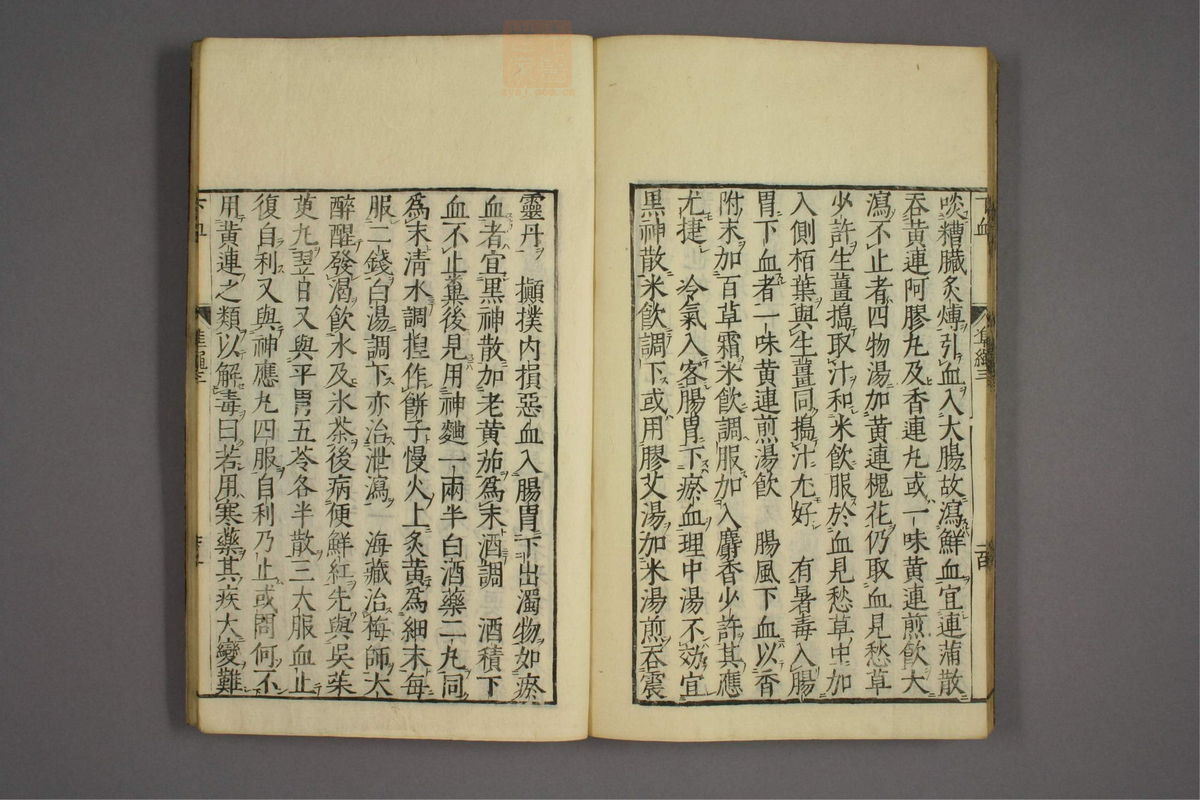 啖糟臟炙煿引血入大腸故瀉鮮血宜連蒲散
吞黃連阿膠丸及香連丸或一味黃連煎飲大
瀉不止者四物湯加黃連槐花仍取血見愁草
少許生薑搗取汁和米飲服於血見愁草中加
入側栢葉與生薑同搗汁尤好　有暑毒入腸
胃下血者一味黃連煎湯飲　腸風下血以香
附末加百草霜米飲調服加入麝香少許其應
尤捷　冷氣入客腸胃下瘀血理中湯不効宜
黑神散米飲調下或用膠艾湯加米湯煎吞震
靈丹　攧撲內損惡血入腸胃下出濁物如瘀
血者宜黑神散加老黃茄為末酒調　酒積下
血不止糞後見用神麯一兩半白酒藥二丸同
為末清水調揑作餅子慢火上炙黃為細末每
服二錢白湯調下亦治泄瀉　海藏治梅師大
醉醒發渴飲水及氷茶後病便鮮紅先與吳茱
萸丸翌日又與平胃五苓各半散三大服血止
復自利又與神應丸四服自利乃止或問何不
用黃連之類以解毒曰若用寒藥其疾大變難
下血